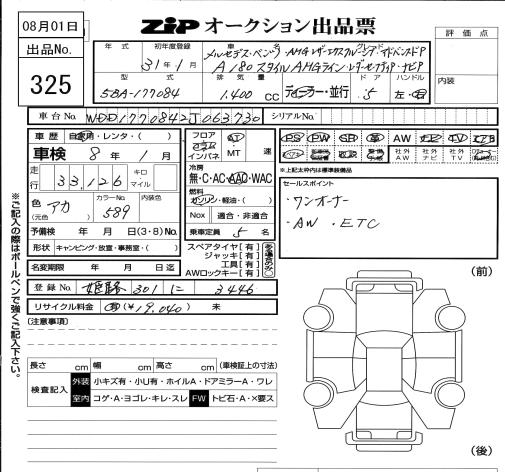 08月01日
出品No.
325
ZIP オークション出品票
評価点
年式 初年度登録 車名 グレード
31年1月 メルセデス・ベンツ
A180スタイル AMGライン・レーダーセーフティP・ナビP
型式 排気量 ドア ハンドル
5BA-177084 1,400 CC ディーラー・並行 5 左・右
内装
車台No. WDD1770842J063730 シリアルNo.
車歴 自家用・レンタ・( )
車検 8年 1月
走行 33,126 キロ マイル
色(元色) アカ カラーNo. 589 内装色
予備検 年 月(3・8)No.
形状 キャンピング・放宣・事務室・( )
名変期限 年 月 日迄
フロア コラム インパネ AT・MT 速
冷房
無・C・AC・AAC・WAC
燃料
ガソリン・軽油・( )
Nox 適合・非適合
乗車定員 5 名
スペアタイヤ[有]
ジャッキ[有]
工具[有]
AWロックキー[有]
PS PW SR 革 AW ナビ TV エアB
社外AW 社外ナビ 社外TV
※上記太枠内は標準装備品
セールスポイント
・ワンオーナー
・AW．ETC
登録No. 姫路 301 に 3446
リサイクル料金 有(¥19,040) 未
(注意事項)
長さ cm 幅 cm 高さ cm (車検証上の寸法)
検査記入 外装 小キズ有・小U有・ホイルA・ドアミラーA・ワレ
室内 コゲ・A・ヨゴレ・キレ・スレ FW トビ石・A・×要ス
(前)
(後)
※ご記入の際はボールペンで強くご記入下さい。